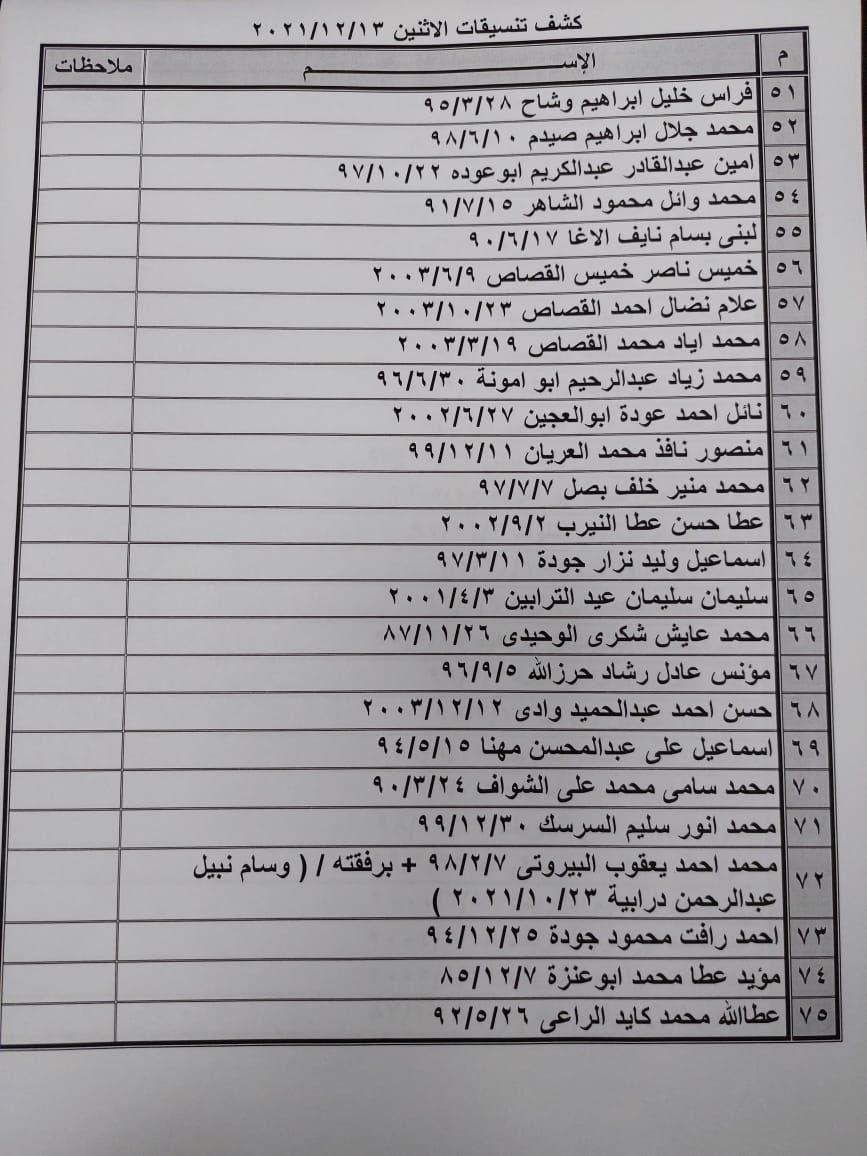 كشف تنسيقات الاثنين ٢٠٢١/١٢/١٣
م الإســـــــــم ملاحظات
٥١ فراس خليل ابراهيم وشاح ٩٥/٣/٢٨
٥٢ محمد جلال ابراهيم صيدم ٩٨/٦/١٠
٥٣ امين عبدالقادر عبدالكريم ابوعوده ٩٧/١٠/٢٢
٥٤ محمد وائل محمود الشاهر ٩١/٧/١٥
٥٥ لبنى بسام نايف الاغا ٩٠/٦/١٧
٥٦ خميس ناصر خميس القصاص ٢٠٠٣/٦/٩
٥٧ علام نضال احمد القصاص ٢٠٠٣/١٠/٢٣
٥٨ محمد اياد محمد القصاص ٢٠٠٣/٣/١٩
٥٩ محمد زياد عبدالرحيم ابو امونة ٩٦/٦/٣٠
٦٠ نائل احمد عودة ابوالعجين ٢٠٠٢/٦/٢٧
٦١ منصور نافذ محمد العريان ٩٩/١٢/١١
٦٢ محمد منير خلف بصل ٩٧/٧/٧
٦٣ عطا حسن عطا النيرب ٢٠٠٢/٩/٢
٦٤ اسماعيل وليد نزار جودة ٩٧/٣/١١
٦٥ سليمان سليمان عيد الترابين ٢٠٠١/٤/٣
٦٦ محمد عايش شكرى الوحيدى ٨٧/١١/٢٦
٦٧ مؤنس عادل رشاد حرزالله ٩٦/٩/٥
٦٨ حسن احمد عبدالحميد وادى ٢٠٠٣/١٢/١٢
٦٩ اسماعيل على عبدالمحسن مهنا ٩٤/٥/١٥
٧٠ محمد سامى محمد على الشواف ٩٠/٣/٢٤
٧١ محمد انور سليم السرسك ٩٩/١٢/٣٠
٧٢ محمد احمد يعقوب البيروتى ٩٨/٢/٧ + برفقته / ( وسام نبيل
عبدالرحمن درابية ٢٠٢١/١٠/٢٣ )
٧٣ احمد رافت محمود جودة ٩٤/١٢/٢٥
٧٤ مؤيد عطا محمد ابوعنزة ٨٥/١٢/٧
٧٥ عطاالله محمد كايد الراعى ٩٢/٥/٢٦